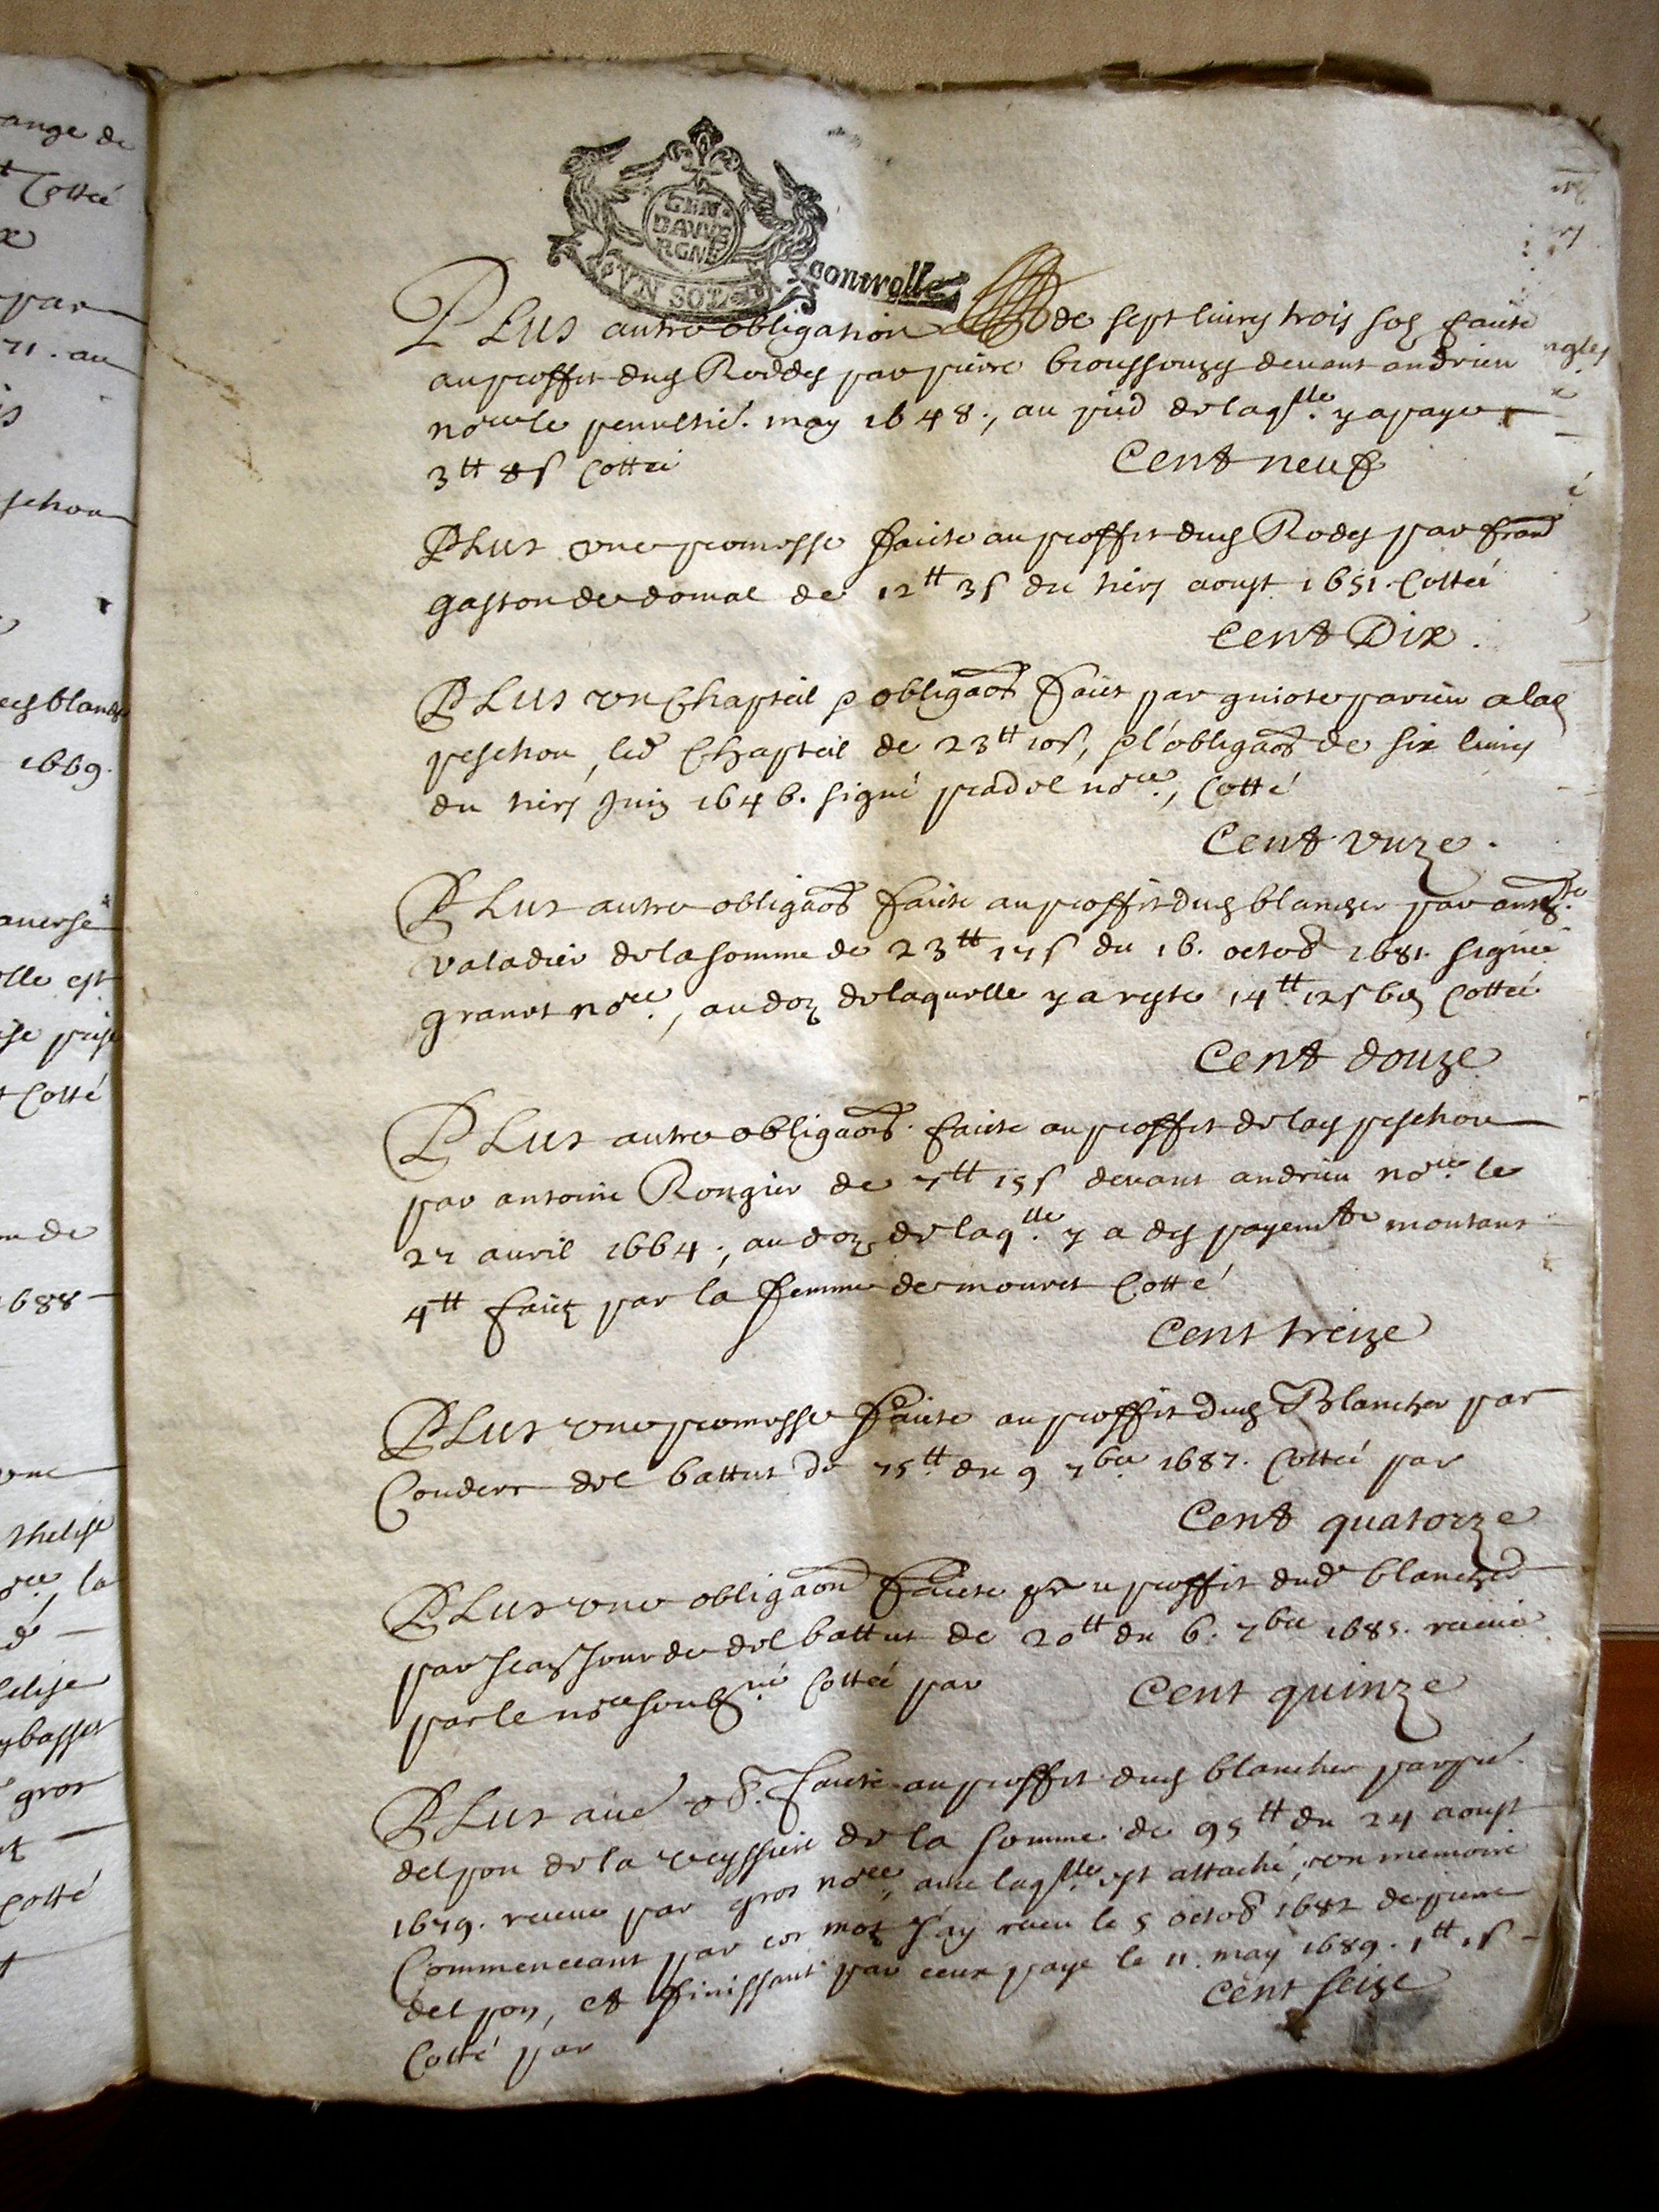 GEN.
DAVVE
RGNE
VN SOL
controlle
PLus autre obligation de sept livres trois solz faicte
au proffit dud Roddes par pierre broussouzes devant andrieu
nore le penultie. may 1648., au pied de laqlle. y a paye
3tt 8s Cottée
Cent neuf
PLus une promesse faicte au proffit dud Rodes par fran
gaston de domal de 12tt 3s du tiers aoust 1651. Cottée
Cent Dix.
PLus un Chapteil & obligaon faict par guiote parieu a lad
peschou, led Chapteil de 23tt 10s, & l'obligaon de six livres
du tiers Juin 1646. signé pradel nore., Cotté
Cent unze.
PLus autre obligaon faicte au proffit dud blancher par
valadier de la somme de 23tt 17s du 16. octob 1681. signée
granet nore., au doz de laquelle y a reste 14tt 12s 6d Cottée
Cent douze
PLus autre obligaon faicte au proffit de lad peschou
par antoine Rongier de 7tt 15s devant andrieu nore. le
27 avril 1664., au doz de laqlle. y a des payemts montant
4tt faictz par la femme de mouret Cotté
Cent treize
PLus une promesse faicte au proffit dud Blancher par
Couderc del battut de 75tt. du 9 7bre 1687. Cottée par
Cent quatorze
PLus une obligaon faicte au proffit dud blancher
par Jean Jourde del battut de 20tt du 6. 7bre 1685. receue
par le nore soubsne Cottée par
Cent quinze
PLus au ob. faicte au proffit dud blancher par pe.
delpon de la veyssiere de la somme de 95tt du 24 aoust
1679. receue par gros nore, avec laqlle. est attaché, un memoire
Commenceant par ces motz J'ay receu le 5 octob 1682 de pierre
delpon, et finissant par ceux paye le 11. may 1689. 1tt 1s
Cotté par
Cent seize
ange de
Cottée
par
71. au
peschou
blancher
1669.
averse
elle est
Cotté
de
1688
la
gros
Cotté